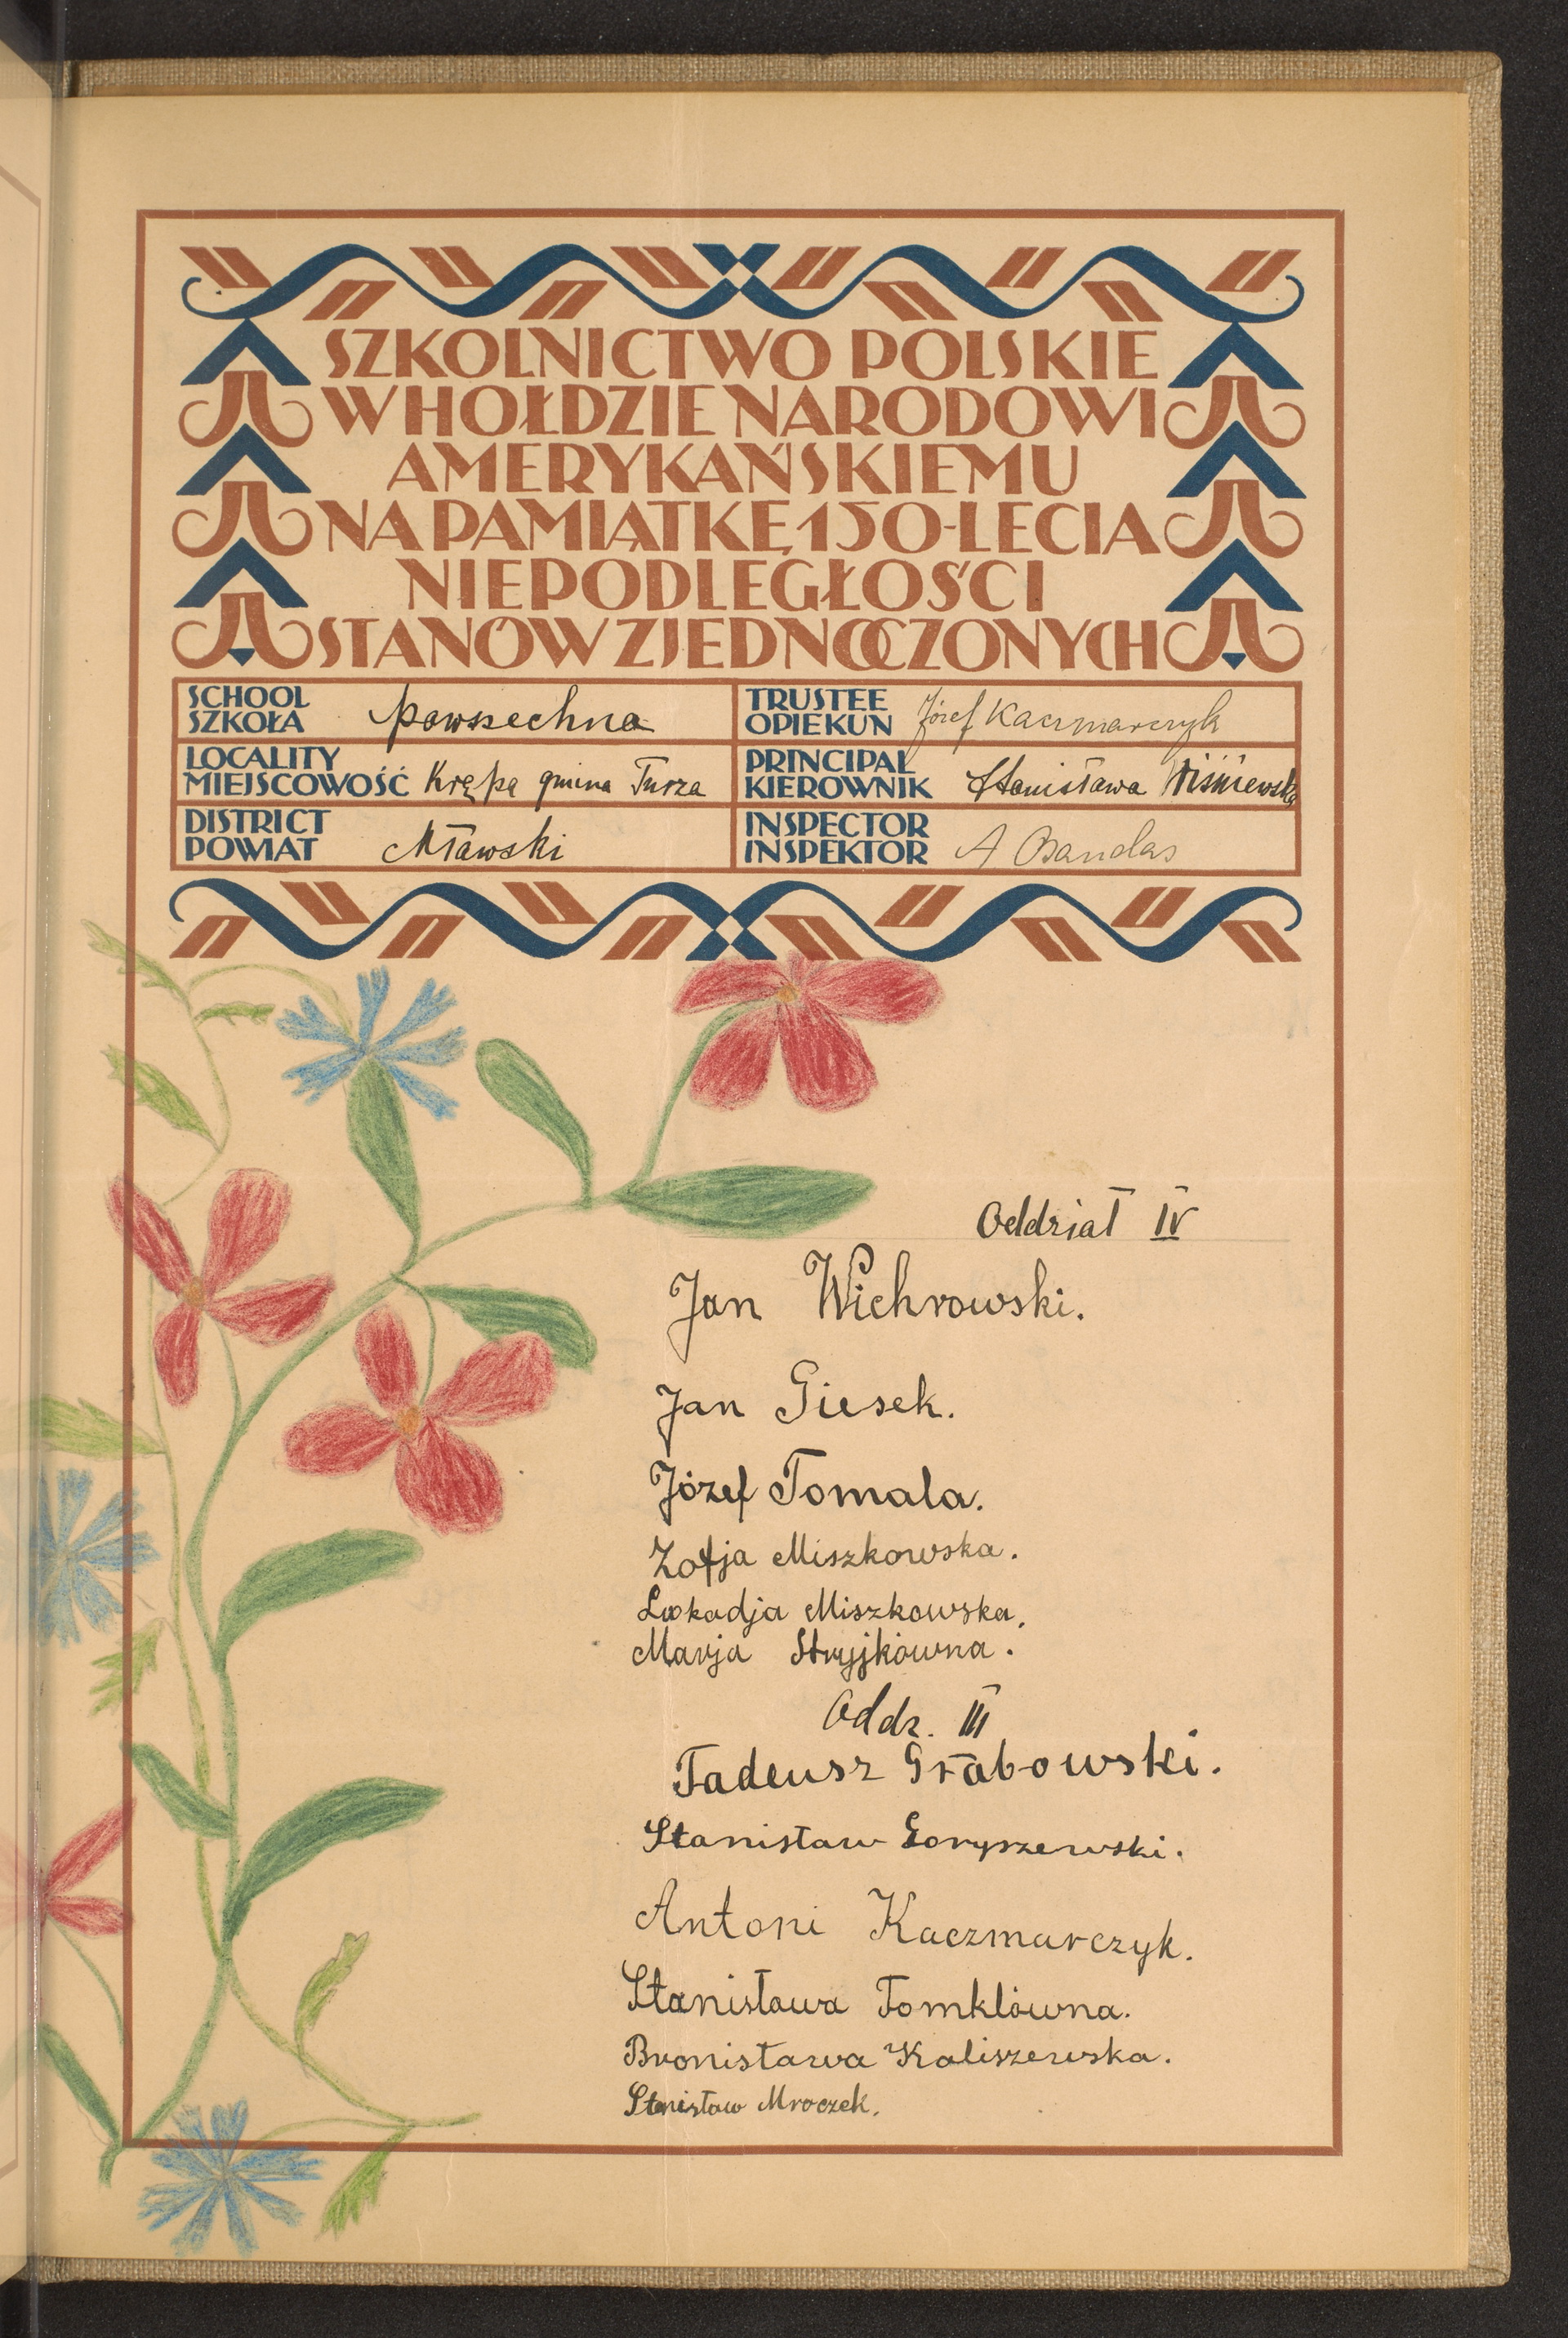 SZKOLNICTWO POLSKIE
W HOŁDZIE NARODOWI
AMERYKAŃSKIEMU
NA PAMIĄTKĘ 150-LECIA
NIEPODLEGŁOŚCI
STANÓW ZJEDNOCZONYCH
SCHOOL
SZKOŁA powszechna
TRUSTEE
OPIEKUN Józef Kaczmarczyk
LOCALITY
MIEJSCOWOŚĆ Krępa gmina Turza
PRINCIPAL
KIEROWNIK Stanisława Wiśniewska
DISTRICT
POWIAT Mławski
INSPECTOR
INSPEKTOR A
Oddział IV
Jan Wichrowski.
Jan Giesek.
Józef Tomala.
Zofja Miszkowska.
Leokadja Miszkowska.
Marja Stryjkówna.
Oddz. III
Tadeusz Grabowski.
Stanisław Goryszewski.
Antoni Kaczmarczyk.
Stanisława Tomklówna.
Bronisława Kaliszewska.
Stanisław Mroczek.